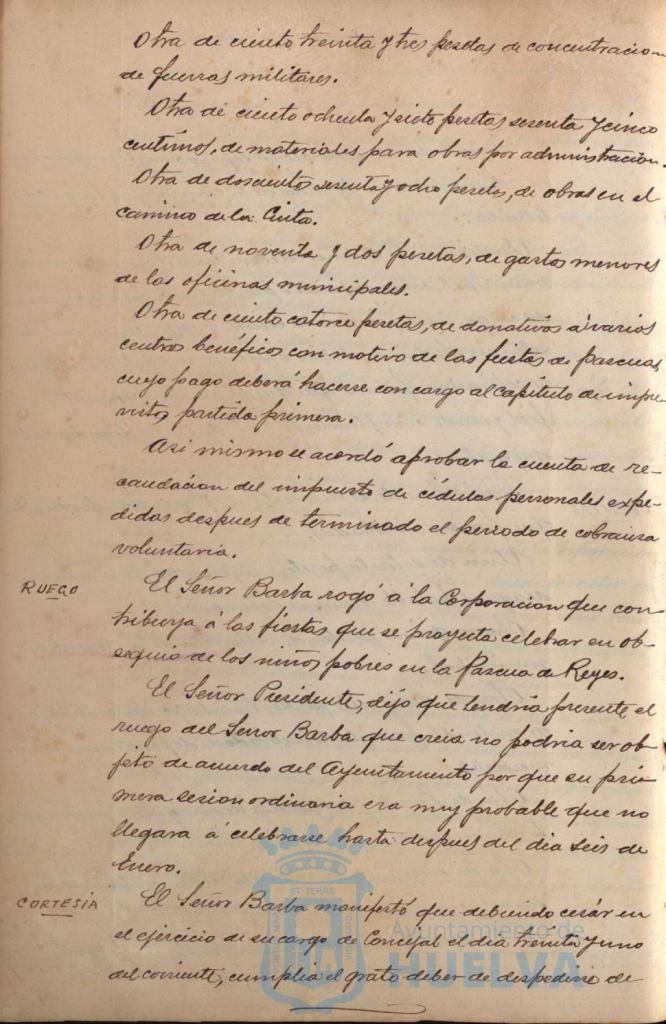 Otra de ciento treinta y tres pesetas de concentracion
de fuerzas militares.
Otra de ciento ochenta y siete pesetas sesenta y cinco
centimos, de materiales para obras por administracion.
Otra de doscientos sesenta y ocho pesetas, de obras en el
camino de la Cinta.
Otra de noventa y dos pesetas, de gastos menores
de las oficinas municipales.
Otra de ciento catorce pesetas, de donativos á varios
centros benéficos con motivo de las fiestas de pascuas,
cuyo pago deberá hacerse con cargo al capítulo de impre-
vistos, partida primera.
Asi mismo se acordó aprobar la cuenta de re-
caudacion del impuesto de cédulas personales expe-
didas despues de terminado el periodo de cobranza
voluntaria.
RUEGO
El Señor Barba rogó á la Corporacion que con-
tribuya á las fiestas que se proyecta celebrar en ob-
sequio de los niños pobres en la Pascua de Reyes.
El Señor Presidente, dijo que tendria presente el
ruego del Señor Barba que creia no podria ser ob-
jeto de acuerdo del Ayuntamiento por que su pri-
mera sesion ordinaria era muy probable que no
llegara á celebrarse hasta despues del dia seis de
Enero.
CORTESÍA
El Señor Barba manifestó que debiendo cesár en
el ejercicio de su cargo de Concejal el dia treinta y uno
del corriente, cumplia el grato deber de despedirse de
ET TERRA
Ayuntamiento de
HUELVA